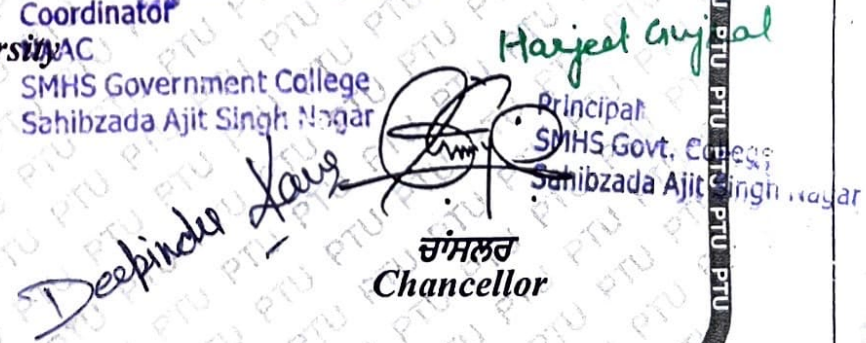 Coordinator
rsity
NAAC
SMHS Government College
Sahibzada Ajit Singh Nagar
Harjeet Gujral
Principal
SMHS Govt. College
Sahibzada Ajit Singh Nagar
Deepinder Kaur
ਚਾਂਸਲਰ
Chancellor
PTU PTU PTU PTU PTU